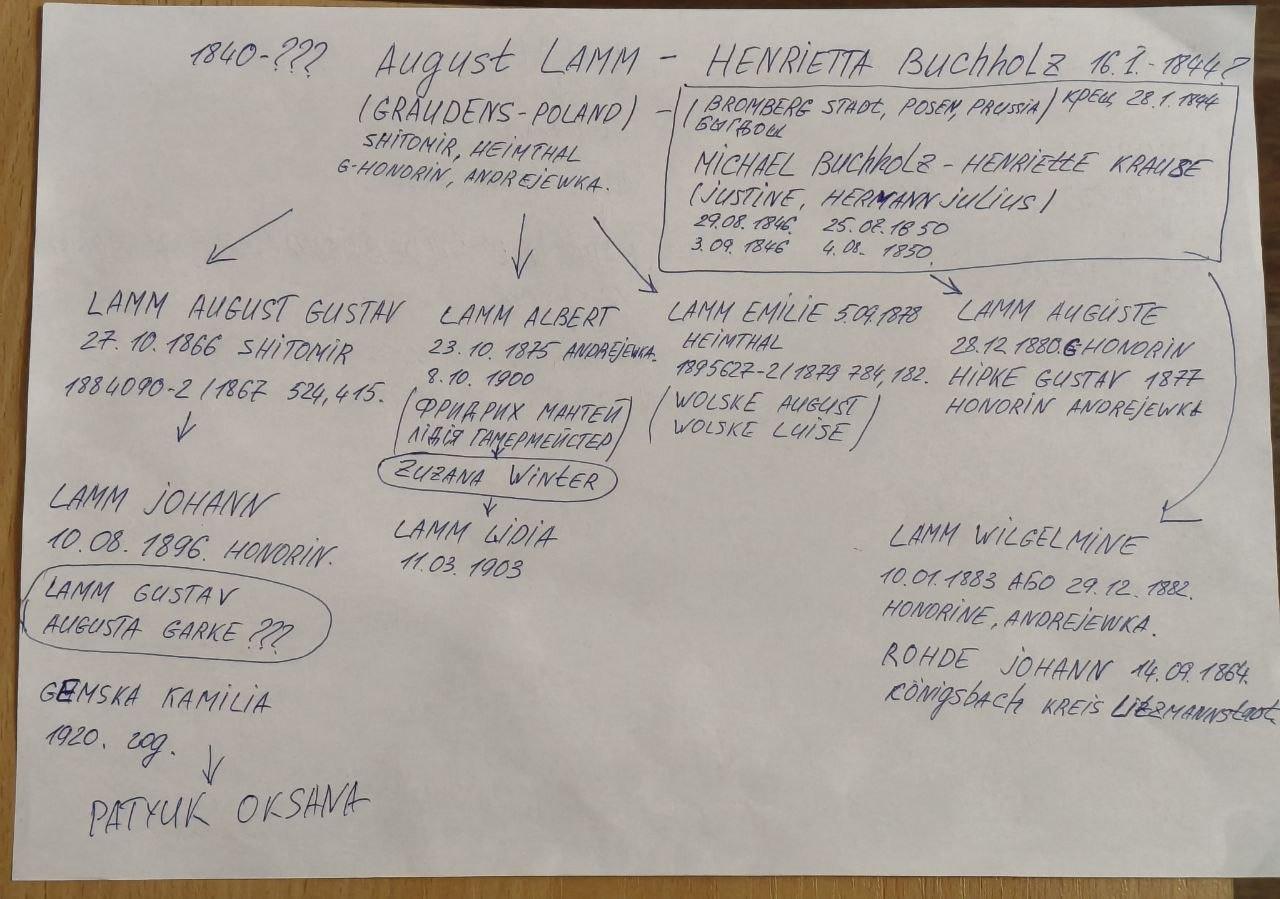 1840-??? August LAMM - HENRIETTA Buchholz 16.I.-1844?
(GRAUDENS-POLAND) - (BROMBERG STADT, POSEN, PRUSSIA) крещ 28.1.1844
SHITOMIR, HEIMTHAL
G-HONORIN, ANDREJEWKA.
MICHAEL BUCHHOLZ - HENRIETTE KRAUSE
(JUSTINE, HERMANN JULIUS)
29.08.1846. 25.07.1850
3.09.1846 4.08. 1850.
LAMM AUGUST GUSTAV
27.10.1866 SHITOMIR
1884090-2/1867 524,415.
LAMM ALBERT
23.10.1875 ANDREJEWKA.
8.10.1900
(ФРИДРИХ МАНТЕЙ
ЛІДІЯ ГАМЕРМЕЙСТЕР)
ZUZANA WINTER
LAMM LIDIA
11.03.1903
LAMM EMILIE 5.09.1878
HEIMTHAL
1895627-2/1879 784,182.
(WOLSKE AUGUST
WOLSKE LUISE)
LAMM AUGUSTE
28.12.1880. G HONORIN
HIPKE GUSTAV 1877
HONORIN ANDREJEWKA
LAMM JOHANN
10.08.1896. HONORIN.
LAMM GUSTAV
AUGUSTA GARKE ???
GEMSKA KAMILIA
1920. год.
PATYUK OKSANA
LAMM WILGELMINE
10.01.1883 АБО 29.12.1882.
HONORINE, ANDREJEWKA.
ROHDE JOHANN 14.09.1864.
KÖNIGSBACH KREIS LITZMANNSTADT